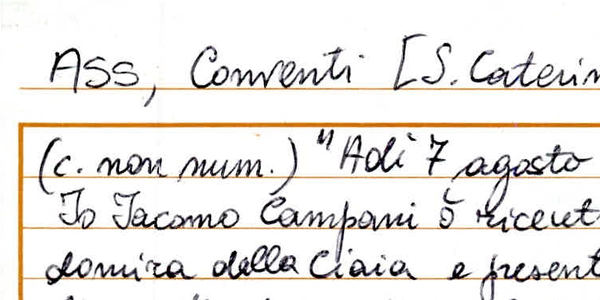 ASS, Conventi [S. Caterin
(c. non num.) "Adì 7 agosto
Io Iacomo Campani ò riceut
domira della Ciaia e present